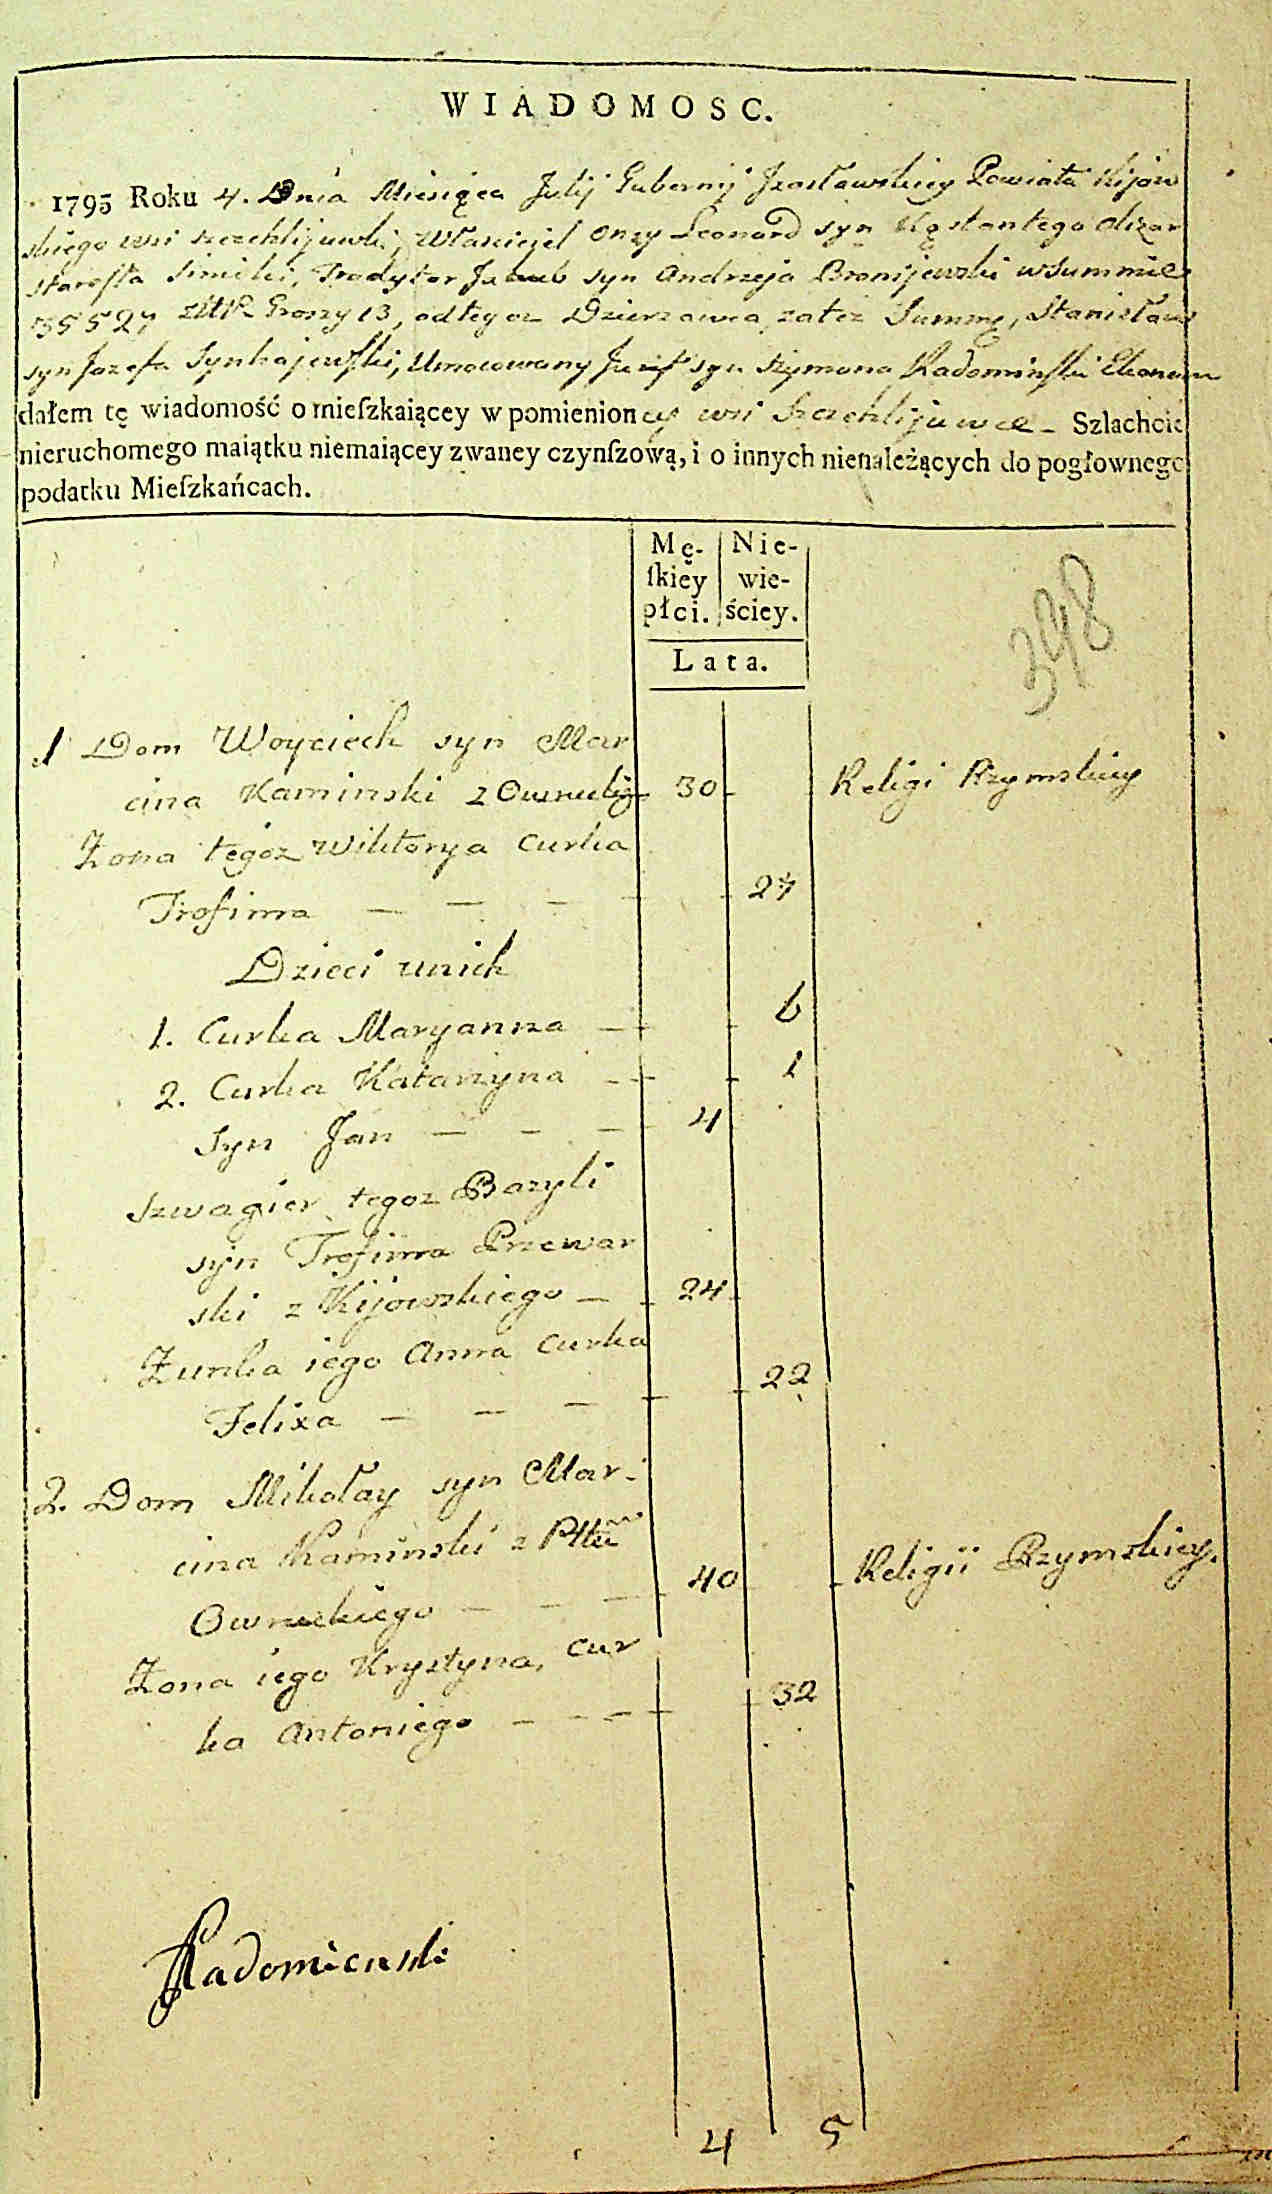 WIADOMOSC.
1795 Roku 4. Dnia Miesiąca Julij Gubernij Izasławskiey Powiatu Kijow
skiego wsi Szczehlijuwki, Własciciel onzy Leonard syn Kąstantego Olizar
starosta, Tradytor Jakub syn Andrzeja Bronijewski w Summie
Groszy 13, od tegoz Dzierzawca zatęz Summę, Stanisław
syn Jozefa, Umocowany Jozef syn Szymona Radominski Ekonom
dałem tę wiadomość o mieſzkaiącey w pomienioney wsi Szczehlijuwce - Szlachcie
nieruchomego maiątku niemaiącey zwaney czynſzową, i o innych nienależących do pogłownego
podatku Mieſzkańcach.
Mę- Nie-
ſkiey wie-
płci. ściey.
Lata.
398
1 Dom Woyciech syn Mar
cina Kaminski z 30 Religi Rzymskiey
Zona tegoz Wiktorya Curka
Trofima — — — 27
Dzieci unich
1. Curka Maryanna — 6
2. Curka Katarzyna — 1
Syn Jan — — — 4
Szwagier tegoz Bazyli
syn Trofima Przewar
ski z Kijowskiego — 24
Zunka iego Anna Curka
Felixa — — — 22
2. Dom Mikołay syn Mar-
cina Kaminski z Pttu
Owruckiego — — — 40 Religii Rzymskiey.
Zona iego Krystyna, Cur
ka Antoniego — — — 32
Radominski
4 5